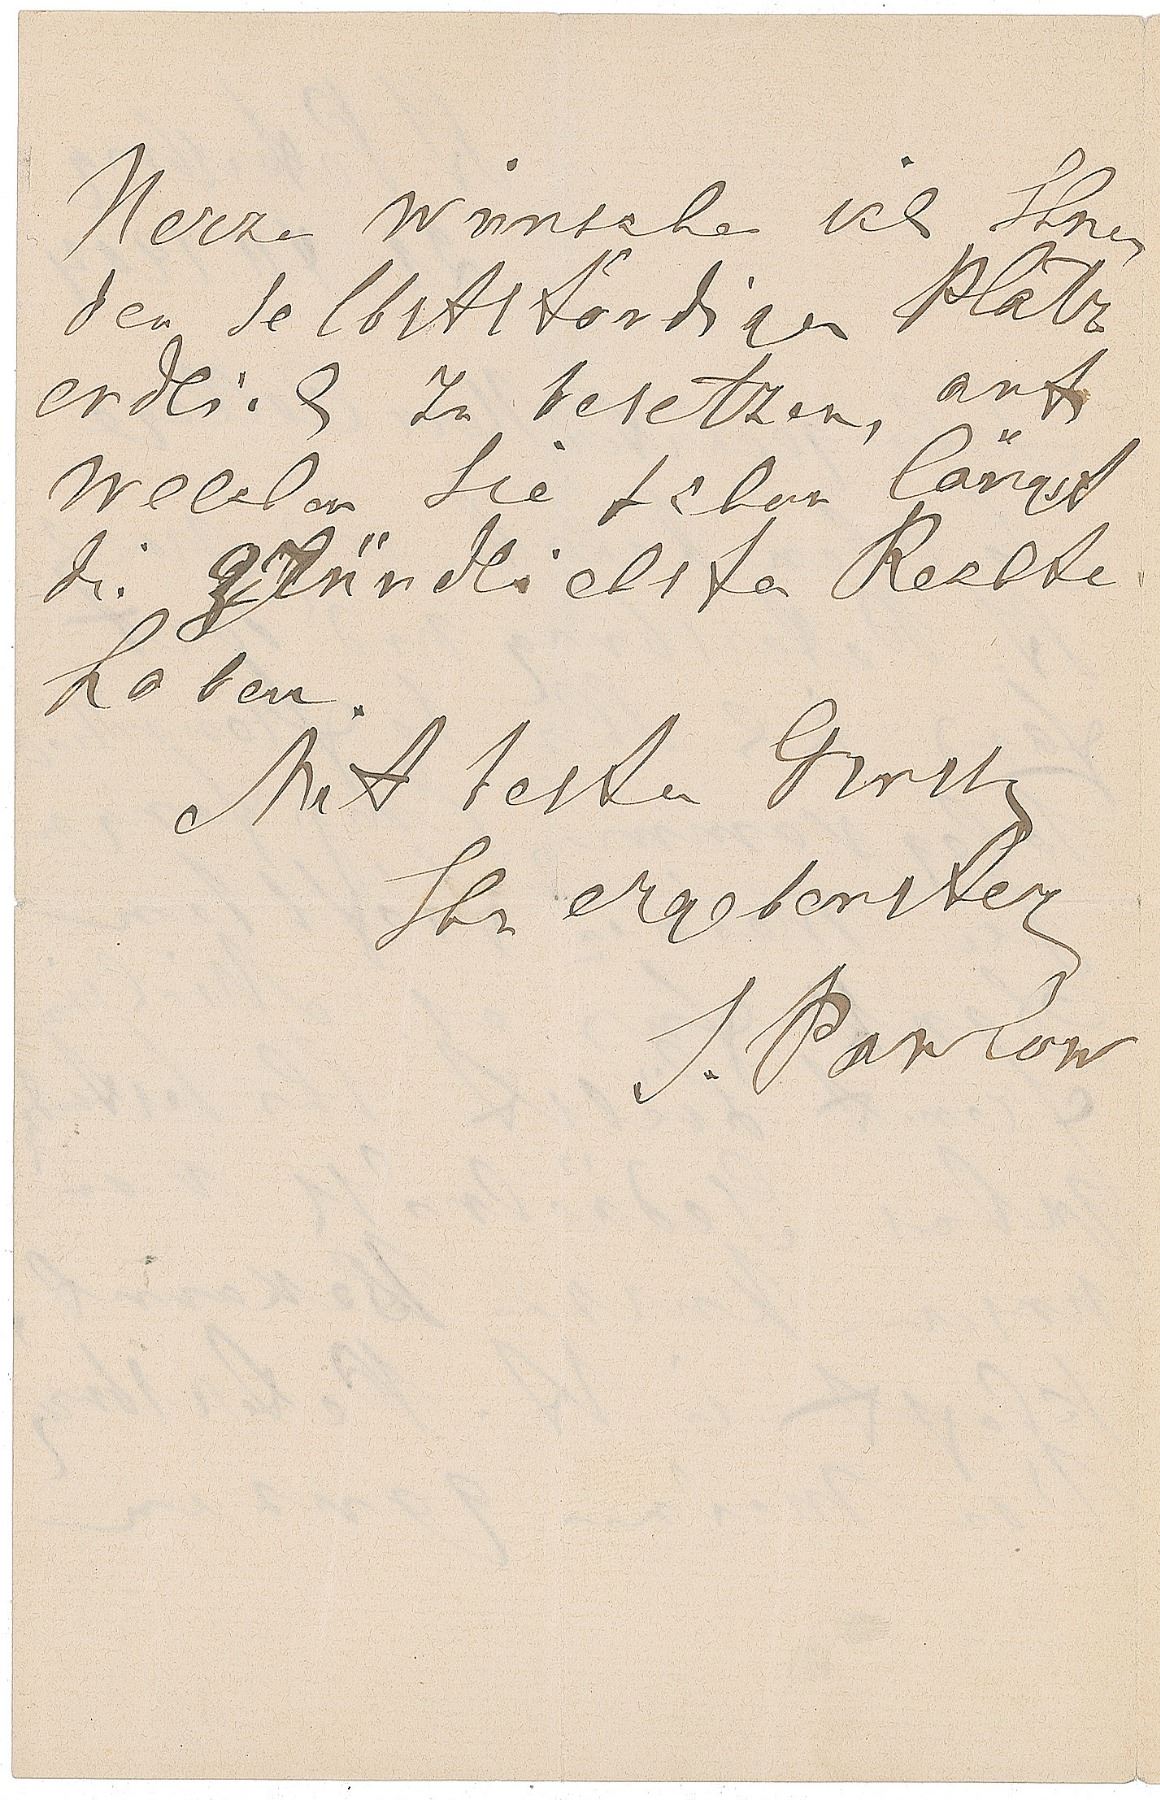 Herzen wünsche ich Ihnen
den selbstständigen Platz
endlich zu besetzen, auf
welchen Sie schon längst
die gründlichsten Rechte
haben.
Mit besten Gruss
Ihr ergebenster
J. Pawlow